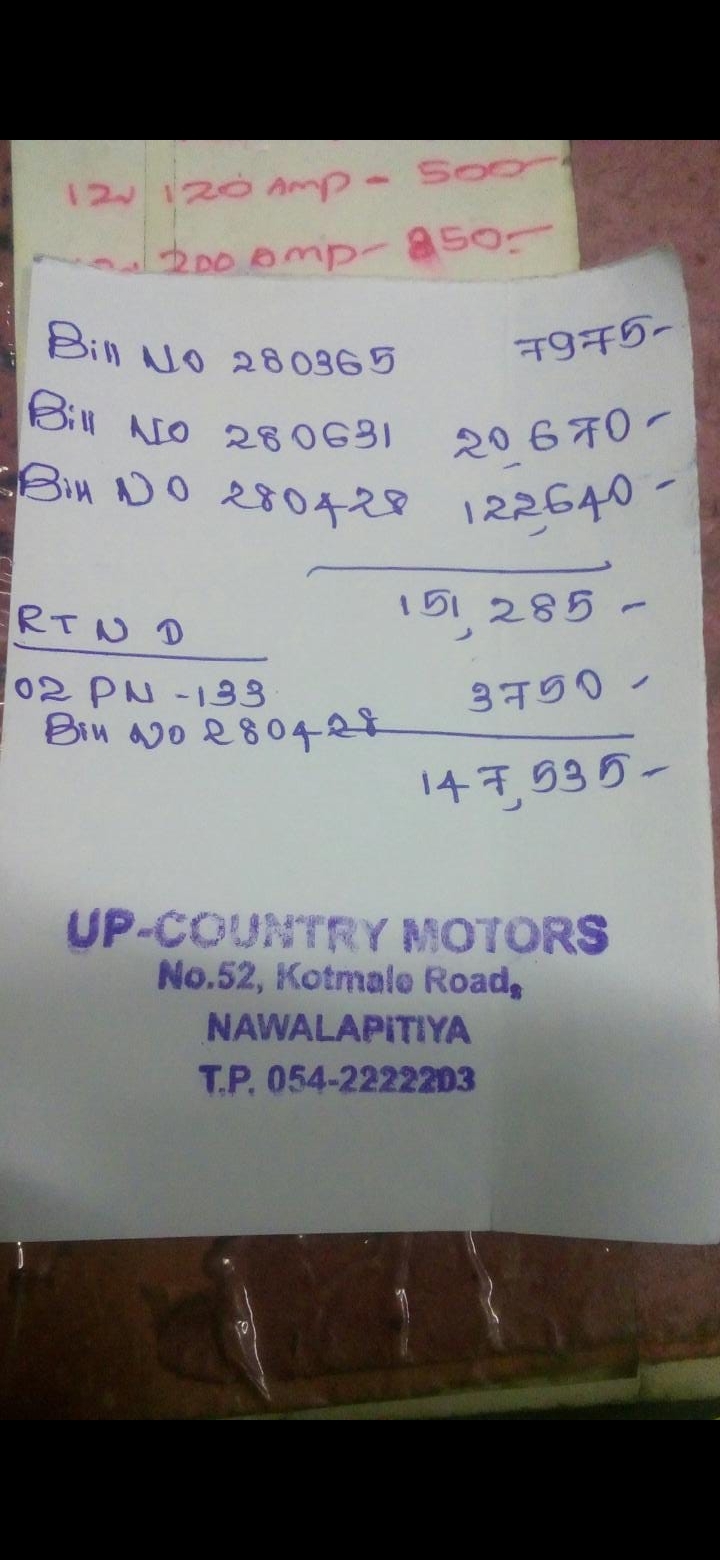 12v 120 Amp - 500-
200 Amp - 850.-
Bill No 280365 7975-
Bill No 280631 20,670-
Bill No 280428 122,640-
151,285-
RTND
02 PN -133 3750-
Bill No 280428
147,535-
UP-COUNTRY MOTORS
No.52, Kotmale Road,
NAWALAPITIYA
T.P. 054-2222203